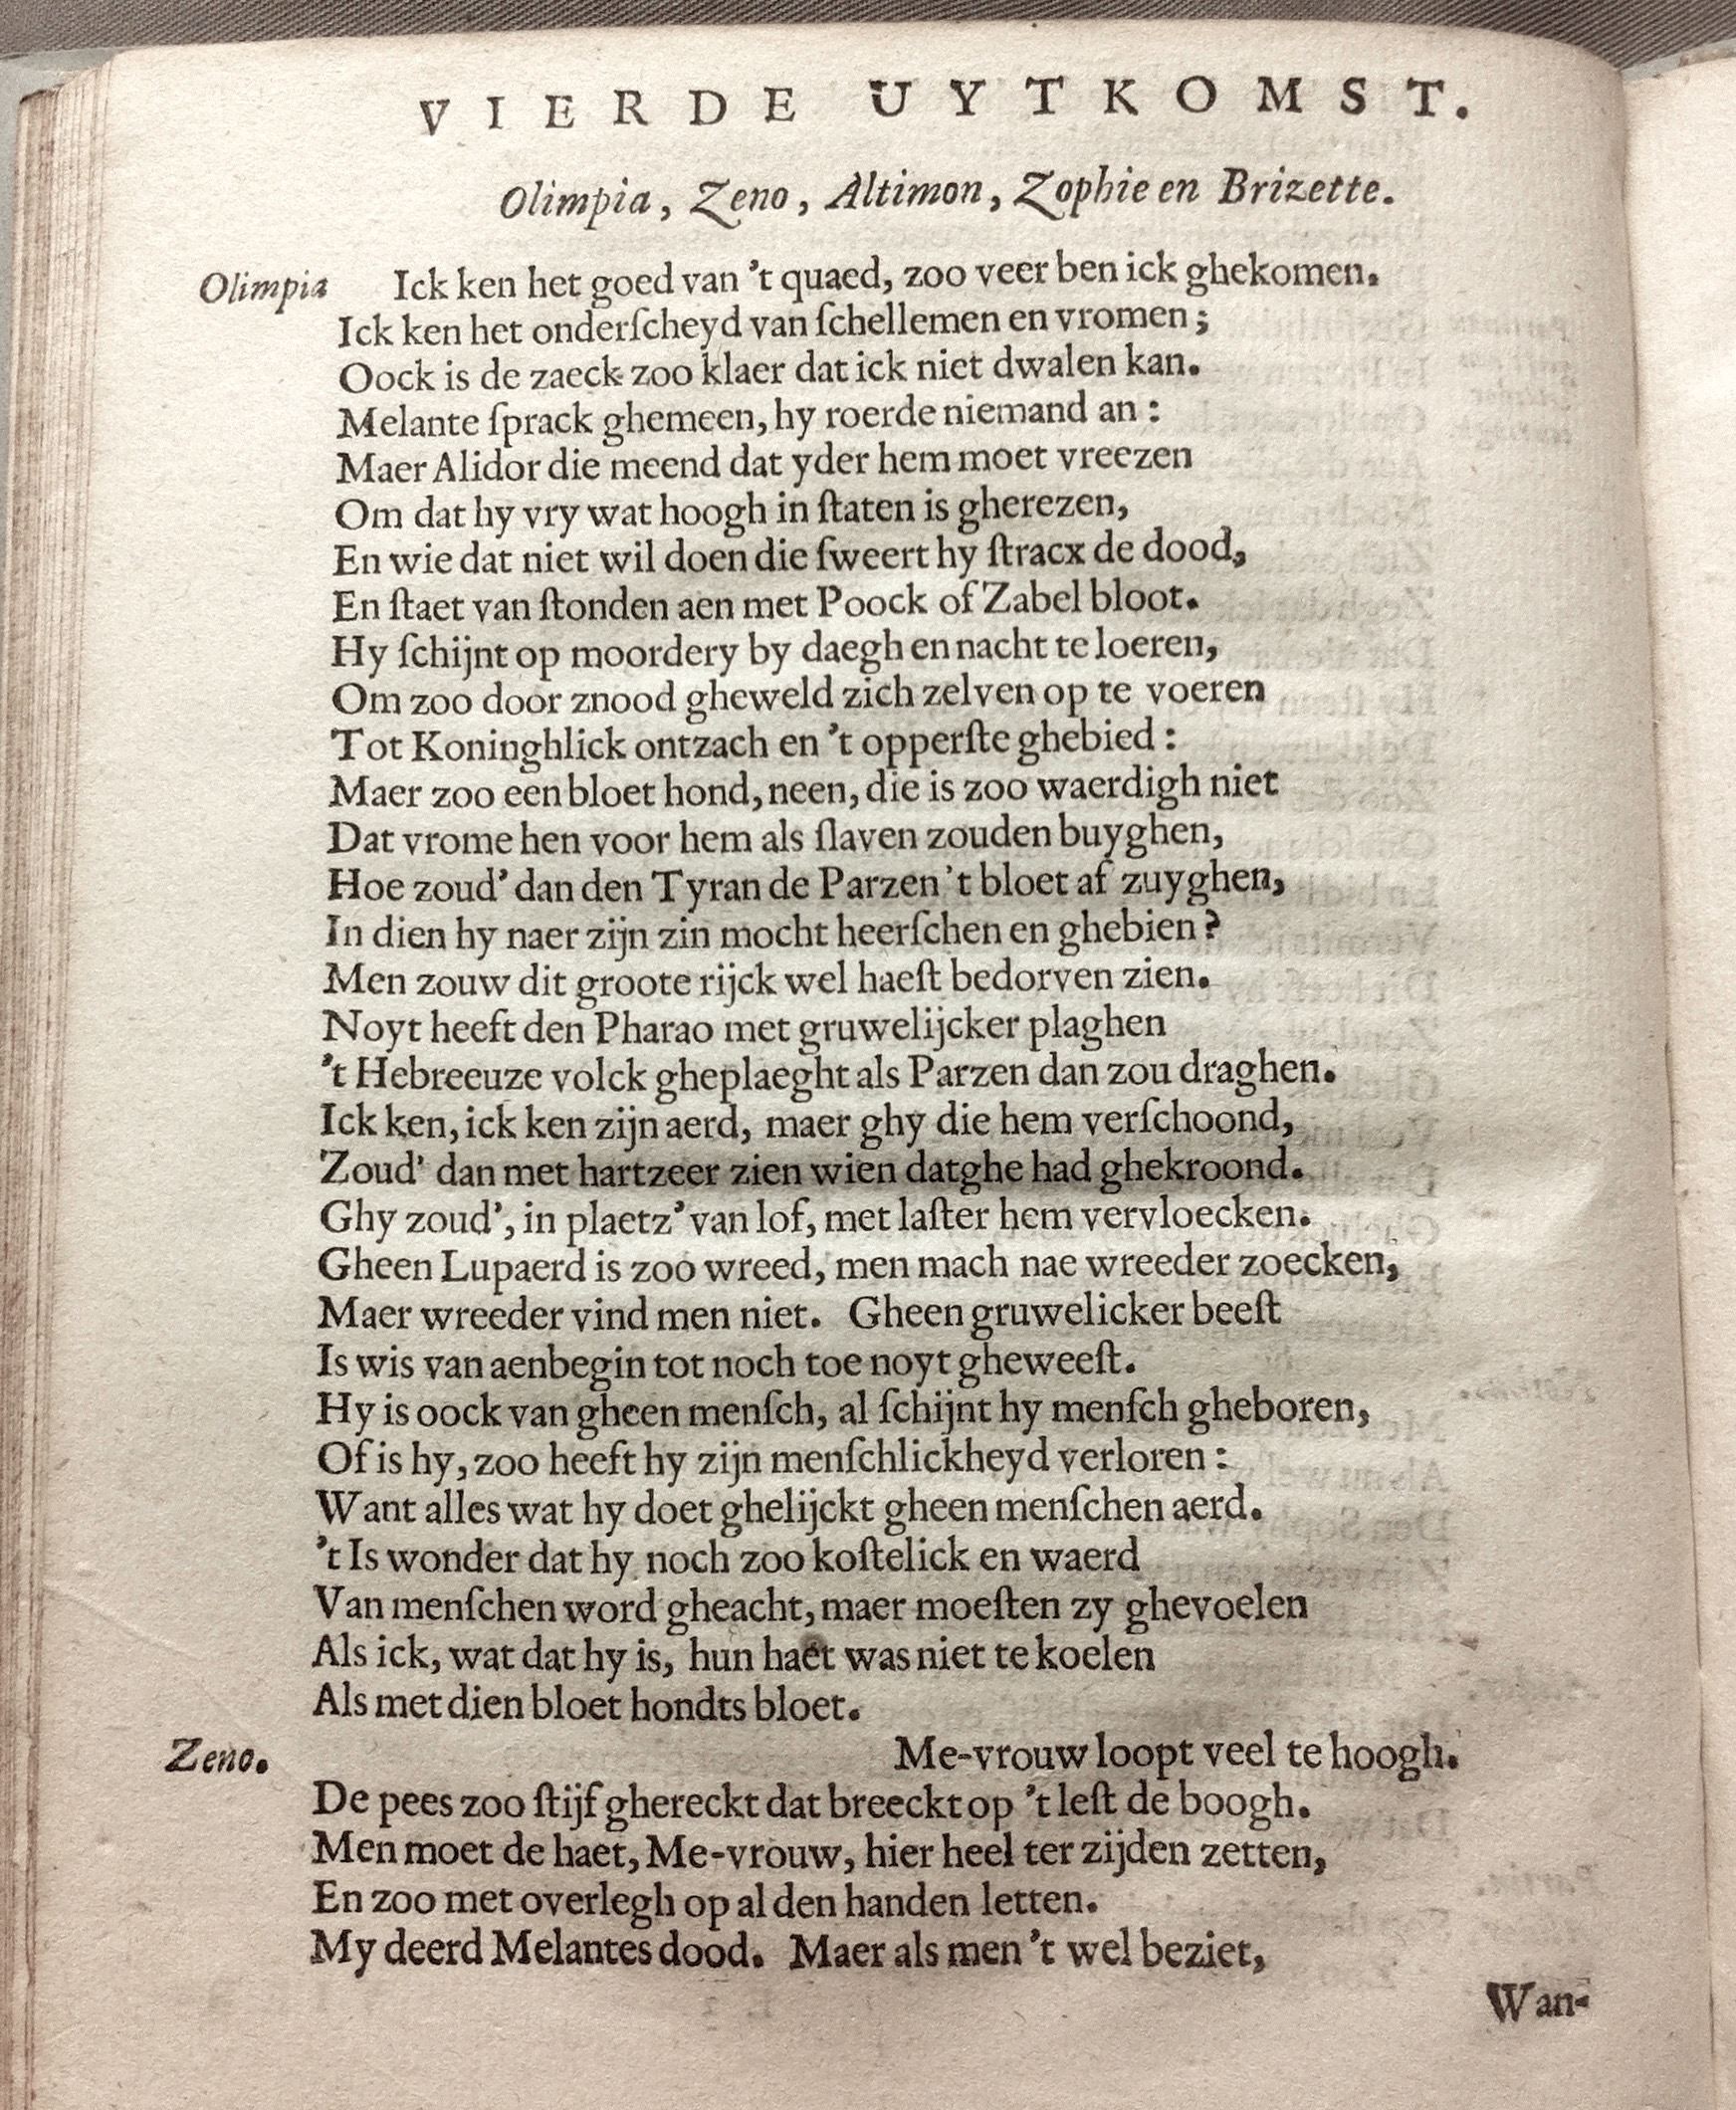 VIERDE UYTKOMST.
Olimpia, Zeno, Altimon, Zophie en Brizette.
Olimpia Ick ken het goed van 't quaed, zoo veer ben ick ghekomen.
Ick ken het onderſcheyd van ſchellemen en vromen;
Oock is de zaeck zoo klaer dat ick niet dwalen kan.
Melante ſprack ghemeen, hy roerde niemand an:
Maer Alidor die meend dat yder hem moet vreezen
Om dat hy vry wat hoogh in ſtaten is gherezen,
En wie dat niet wil doen die ſweert hy ſtracx de dood,
En ſtaet van ſtonden aen met Poock of Zabel bloot.
Hy ſchijnt op moordery by daegh en nacht te loeren,
Om zoo door znood gheweld zich zelven op te voeren
Tot Koninghlick ontzach en 't opperſte ghebied:
Maer zoo een bloet hond, neen, die is zoo waerdigh niet
Dat vrome hen voor hem als ſlaven zouden buyghen,
Hoe zoud' dan den Tyran de Parzen 't bloet af zuyghen,
In dien hy naer zijn zin mocht heerſchen en ghebien?
Men zouw dit groote rijck wel haeſt bedorven zien.
Noyt heeft den Pharao met gruwelijcker plaghen
't Hebreeuze volck gheplaeght als Parzen dan zou draghen.
Ick ken, ick ken zijn aerd, maer ghy die hem verſchoond,
Zoud' dan met hartzeer zien wien datghe had ghekroond.
Ghy zoud', in plaetz' van lof, met laſter hem vervloecken.
Gheen Lupaerd is zoo wreed, men mach nae wreeder zoecken,
Maer wreeder vind men niet. Gheen gruwelicker beeſt
Is wis van aenbegin tot noch toe noyt gheweeſt.
Hy is oock van gheen menſch, al ſchijnt hy menſch gheboren,
Of is hy, zoo heeft hy zijn menſchlickheyd verloren:
Want alles wat hy doet ghelijckt gheen menſchen aerd.
't Is wonder dat hy noch zoo koſtelick en waerd
Van menſchen word gheacht, maer moeſten zy ghevoelen
Als ick, wat dat hy is, hun haet was niet te koelen
Als met dien bloet hondts bloet.
Zeno. Me-vrouw loopt veel te hoogh.
De pees zoo ſtijf ghereckt dat breeckt op 't leſt de boogh.
Men moet de haet, Me-vrouw, hier heel ter zijden zetten,
En zoo met overlegh op al den handen letten.
My deerd Melantes dood. Maer als men 't wel beziet,
Wan-